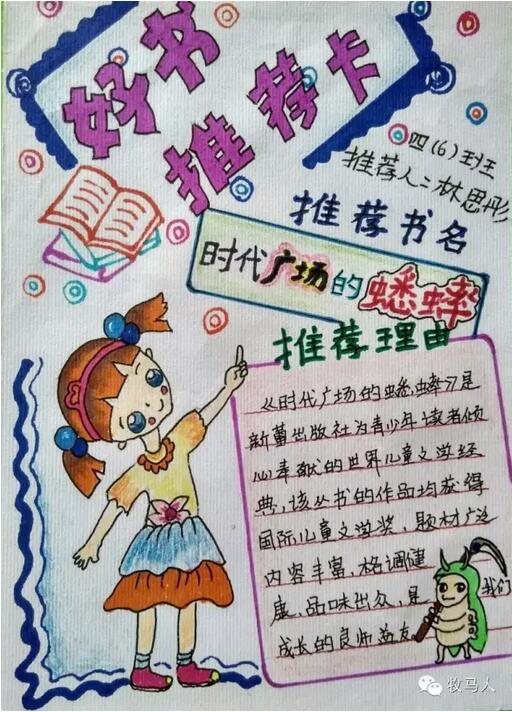 好书
推荐卡
四(6)班
推荐人:林思彤
推荐书名
时代广场的蟋蟀
推荐理由
《时代广场的蟋蟀》是
新蕾出版社为青少年读者倾
心奉献的世界儿童文学经
典,该丛书的作品均获得
国际儿童文学奖,题材广泛
内容丰富,格调健
康、品味出众,是我们
成长的良师益友
牧马人